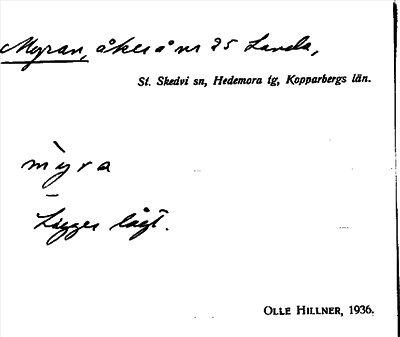 Myran, åker å nr 25 Landa,
St. Skedvi sn, Hedemora tg, Kopparbergs län.
m̀yra
Ligger lågt.
OLLE HILLNER, 1936.